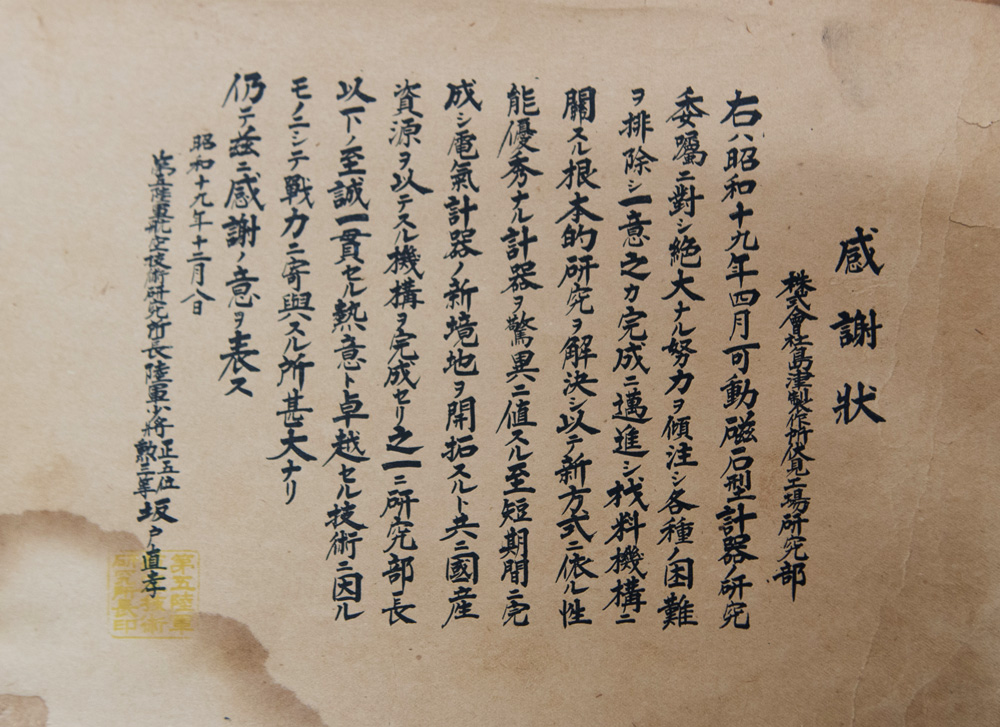 感謝狀
株式會社島津製作所伏見工場研究部
右ハ昭和十九年四月可動磁石型計器ノ研究
委囑ニ對シ絶大ナル努力ヲ傾注シ各種ノ困難
ヲ排除シ一意之カ完成ニ邁進シ材料機構ニ
關スル根本的研究ヲ解決シ以テ新方式ニ依ル性
能優秀ナル計器ヲ驚異ニ値スル至短期間ニ完
成シ電氣計器ノ新境地ヲ開拓スルト共ニ國産
資源ヲ以テスル機構ヲ完成セリ之一ニ研究部長
以下ノ至誠一貫セル熱意ト卓越セル技術ニ因ル
モノニシテ戰力ニ寄與スル所甚大ナリ
仍テ茲ニ感謝ノ意ヲ表ス
昭和十九年十二月八日
第五陸軍航空技術研究所長陸軍少將正五位勲三等坂戸直孝
第五陸軍
技術
研究所長印